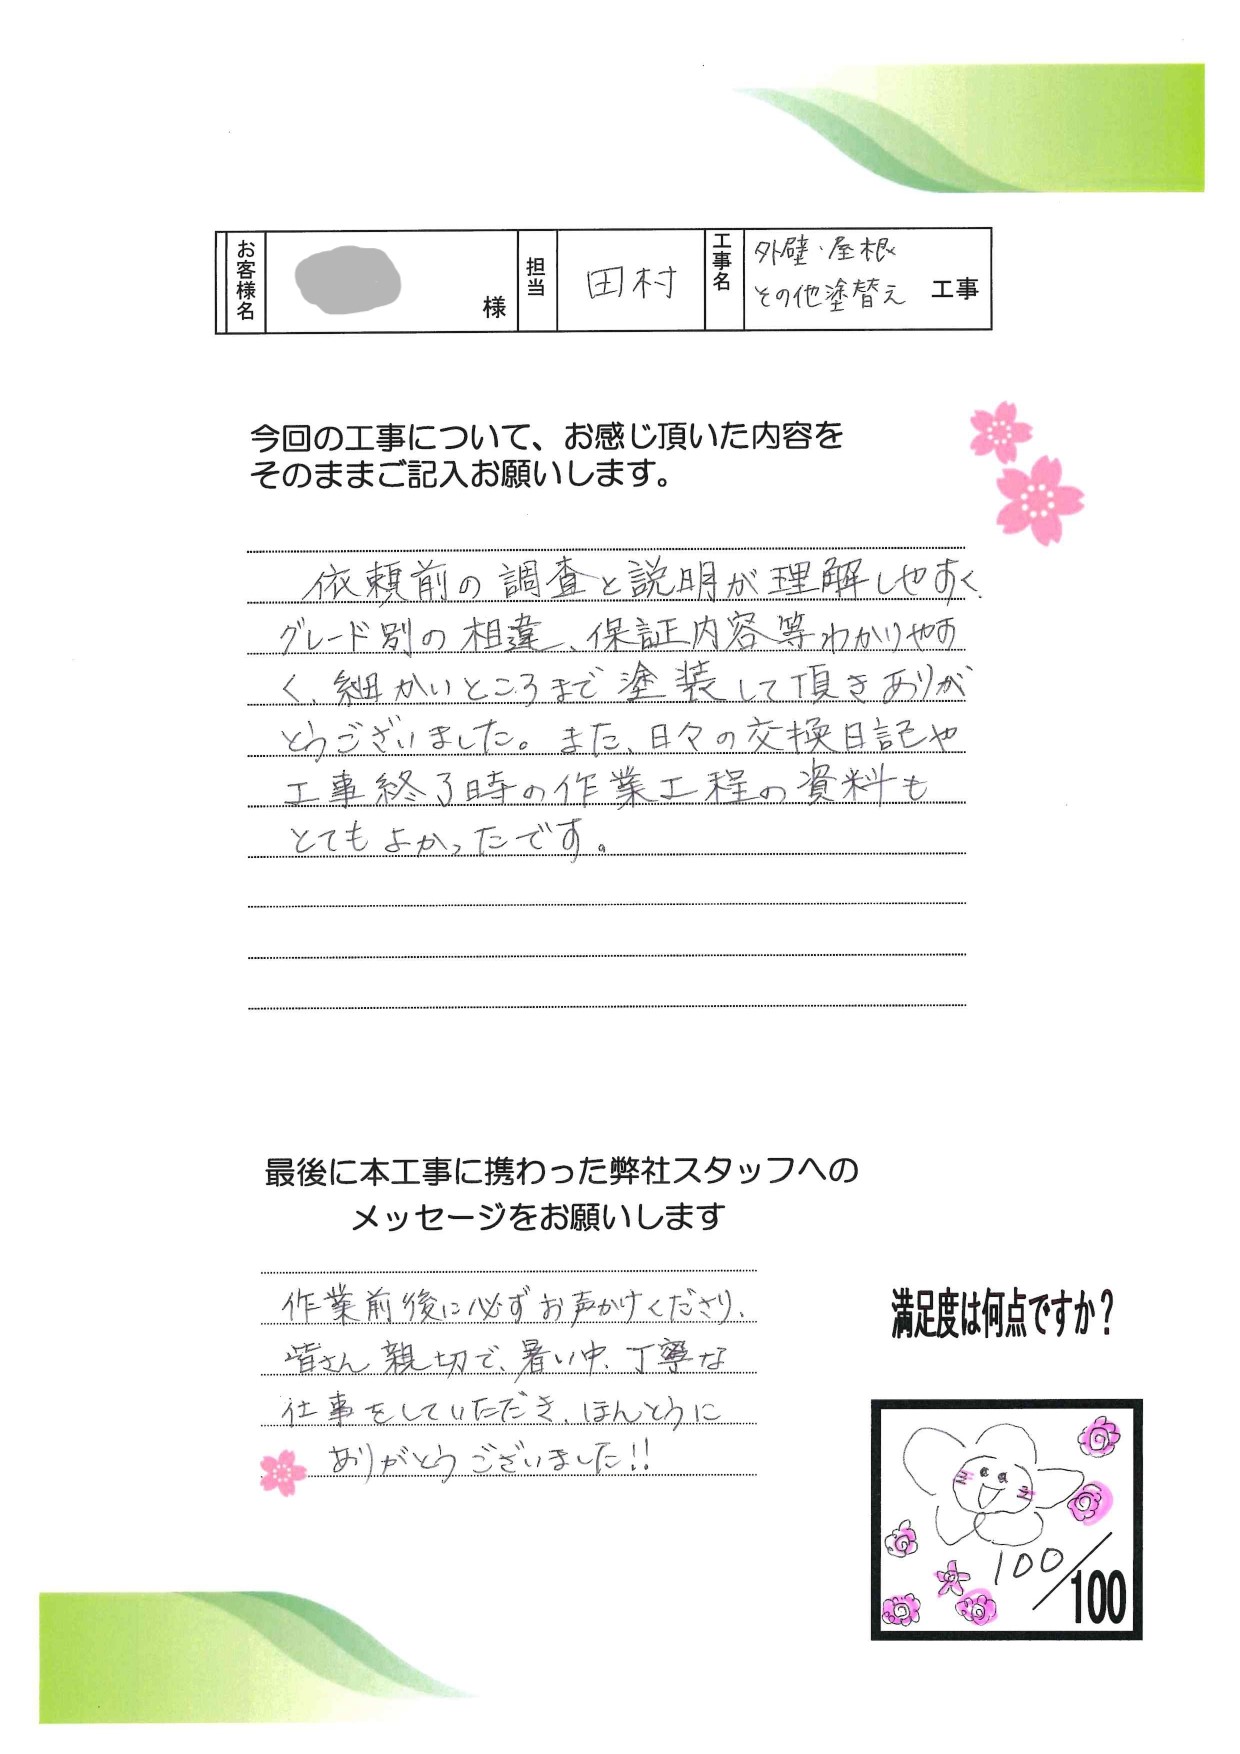 お客様名
様
担当
田村
工事名
外壁・屋根
その他塗替え
工事
今回の工事について、お感じ頂いた内容を
そのままご記入お願いします。
依頼前の調査と説明が理解しやすく、
グレード別の相違、保証内容等わかりやす
く、細かいところまで塗装して頂きありが
とうございました。また、日々の交換日記や
工事終了時の作業工程の資料も
とてもよかったです。
最後に本工事に携わった弊社スタッフへの
メッセージをお願いします
作業前後に必ずお声かけくださり、
皆さん親切で、暑い中、丁寧な
仕事をしていただき、ほんとうに
ありがとうございました!!
満足度は何点ですか?
100/100